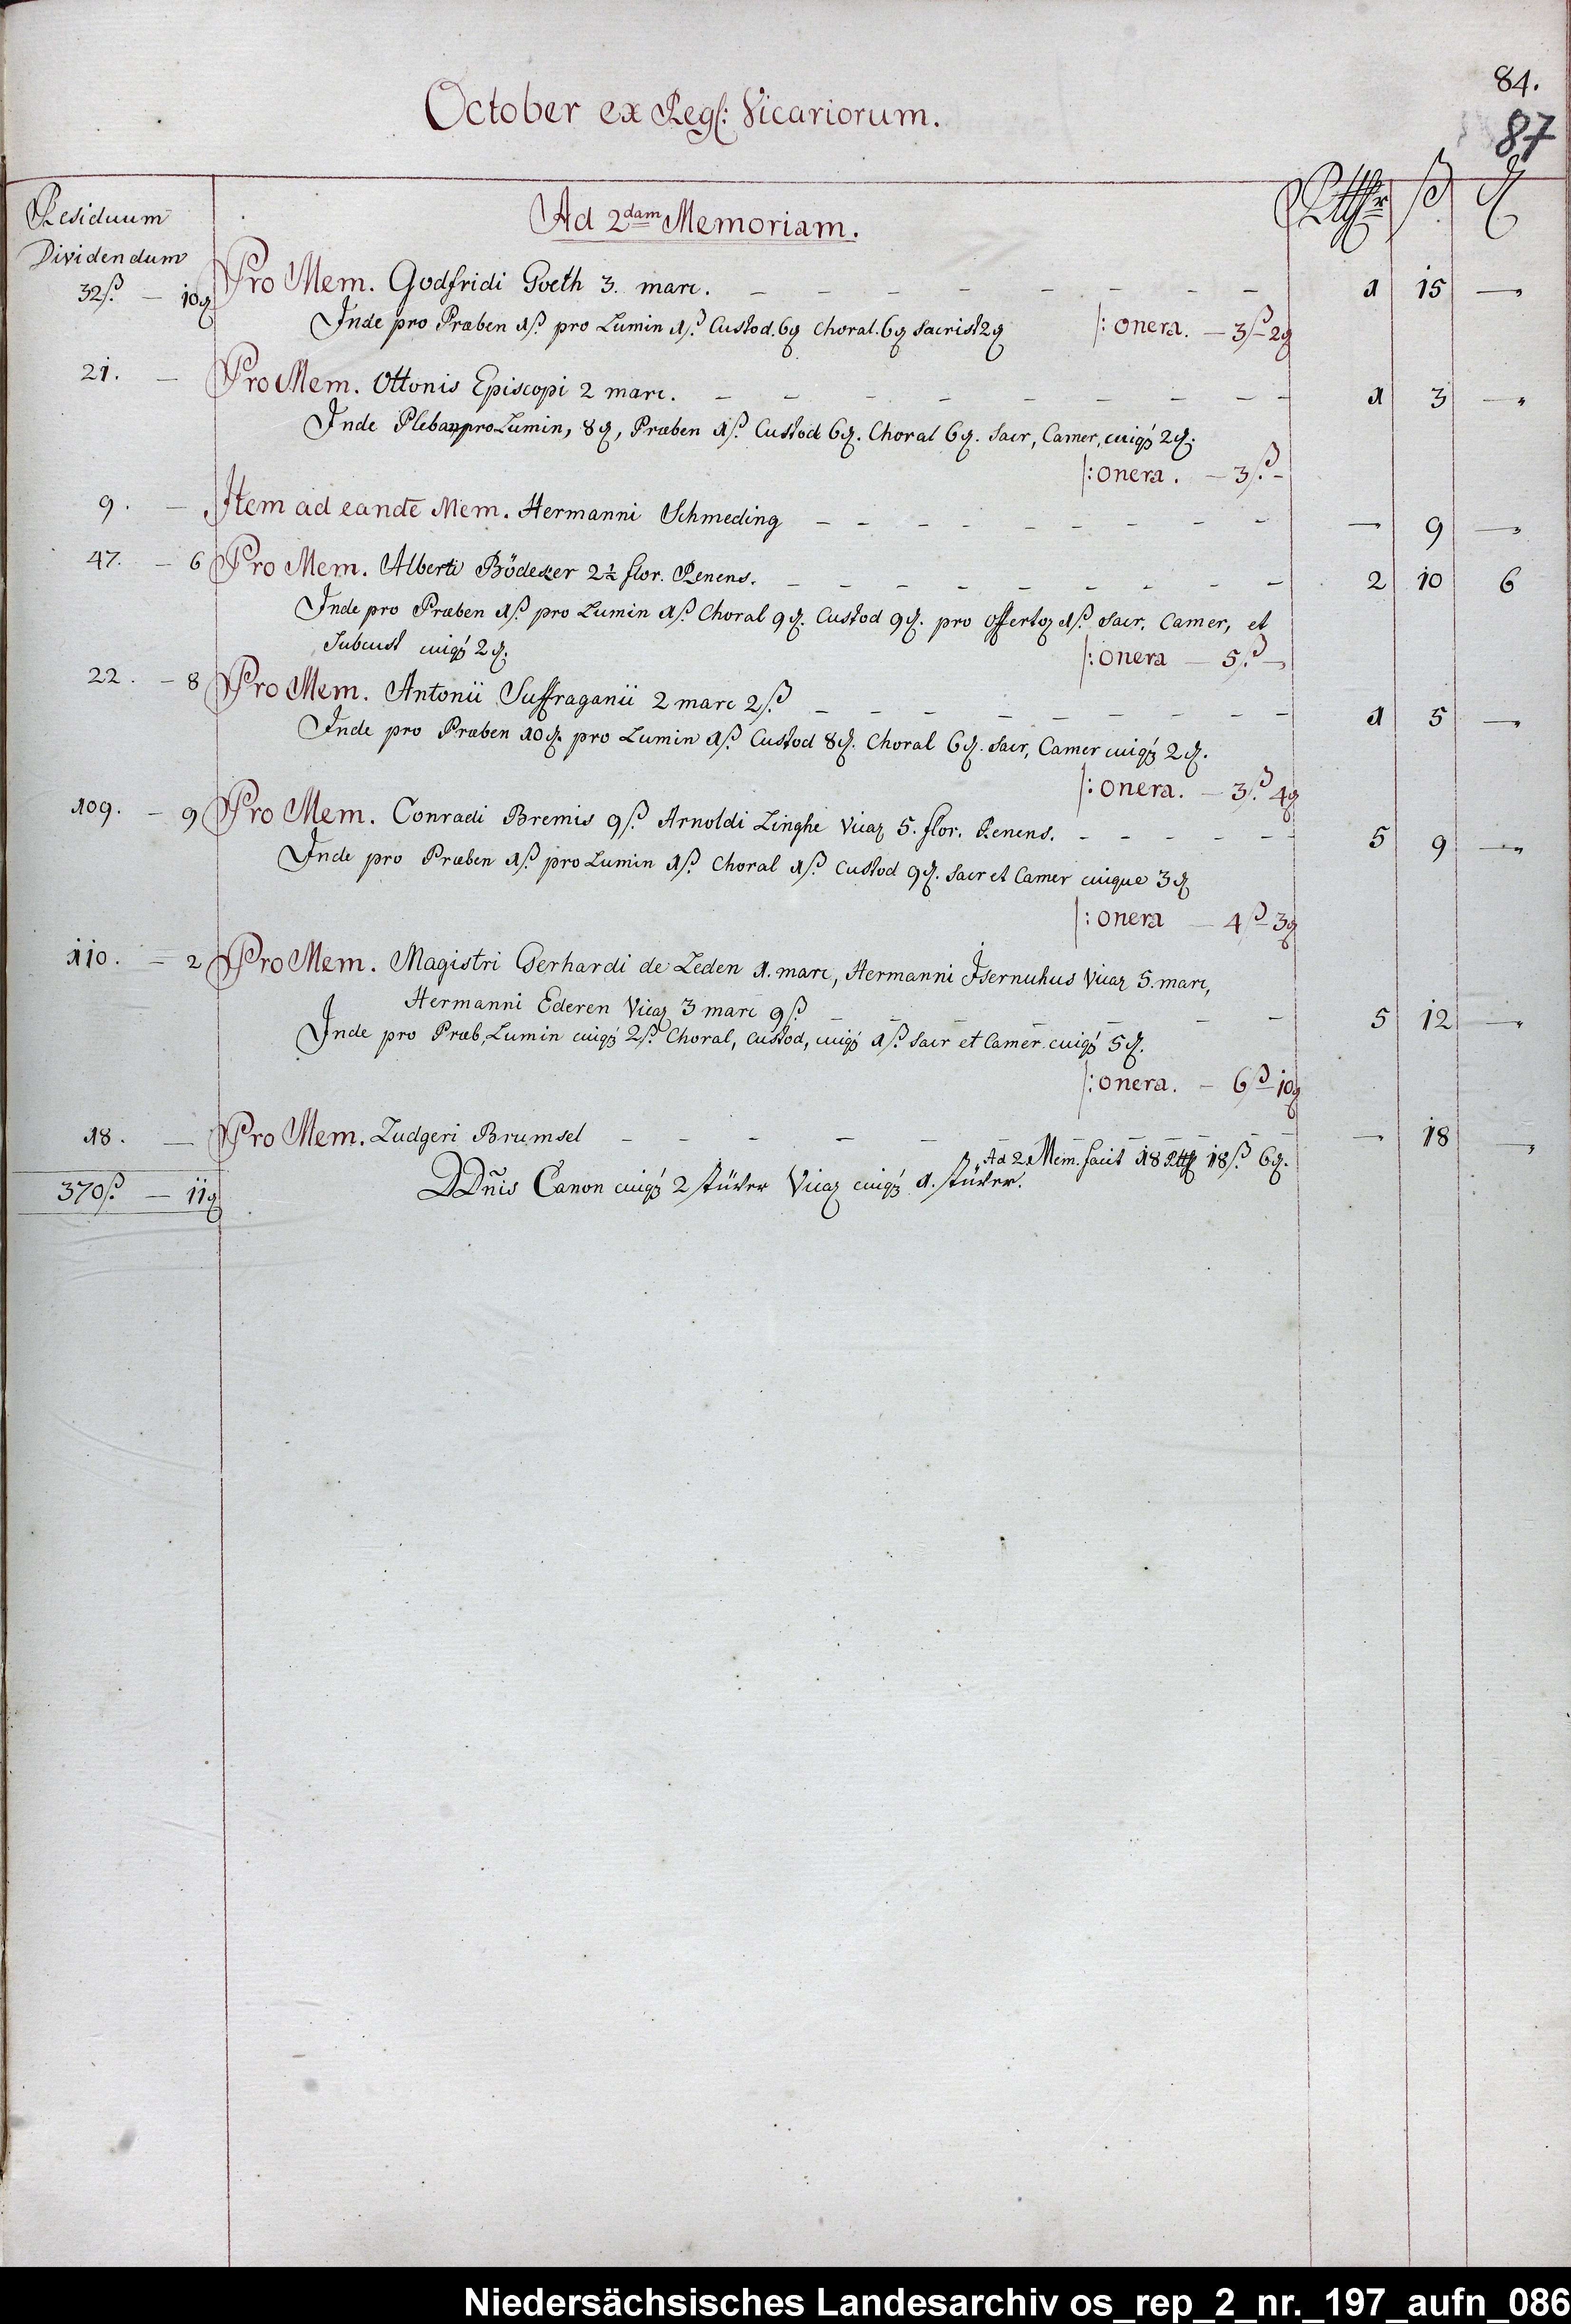 84.
87
October ex Regs: Vicariorum.
Residuum
Dividendum
Ad 2dam Memoriam.
Rthlr ß ₰
32ß. — 10₰ Pro Mem. Godfridi Goeth 3. marc. — — — — — — — — 1 15 —
Inde pro Præben 1ß. pro Lumin 1ß. Custod. 6₰ Choral. 6₰ Sacrist 2₰ /: onera. — 3ß — 2₰
21. — Pro Mem. Ottonis Episcopi 2 marc. — — — — — — — — 1 3 —
Inde Pleban pro Lumin, 8₰, Præben 1ß. Custod 6₰. Choral 6₰. Sacr, Camer, cuiqȝ 2₰.
/: onera. — 3ß. —
9. — Item ad eandē Mem. Hermanni Schmeding — — — — — — — — — 9 —
47. — 6 Pro Mem. Alberti Bödeker 2½ flor. Renens. — — — — — — — — 2 10 6
Inde pro Præben 1ß. pro Lumin 1ß. Choral 9₰. Custod 9₰. pro offertoꝝ 1ß. Sacr. Camer, et
Subcust cuiqȝ 2₰. /: onera — 5ß. —
22. — 8 Pro Mem. Antonii Suffraganii 2 marc 2ß — — — — — — — — 1 5 —
Inde pro Præben 10₰. pro Lumin 1ß. Custod 8₰. Choral 6₰. Sacr, Camer cuiqȝ 2₰.
/: onera. — 3ß. 4₰
109. — 9 Pro Mem. Conradi Bremis 9ß Arnoldi Linghe Vicaꝝ 5. flor. Renens. — — — — — — 5 9 —
Inde pro Præben 1ß. pro Lumin 1ß. Choral 1ß. Custod 9₰. Sacr et Camer cuique 3₰
/: onera — 4ß — 3₰
110. — 2 Pro Mem. Magistri Gerhardi de Leden 1. marc, Hermanni Isernuhus Vicaꝝ 5. marc,
Hermanni Ederen Vicaꝝ 3 marc 9ß. — — — — — — — 5 12 —
Inde pro Præb, Lumin cuiqȝ 2ß. Choral, Custod, cuiqȝ 1ß. Sacr et Camer. cuiqȝ 5₰.
/: onera. — 6ß — 10₰
18. — Pro Mem. Ludgeri Brumsel — — — — — — — — — 18 —
Ad 2. Mem. facit 18 Rthlr 18ß. 6₰.
370ß. — 11₰ DDñis Canon cuiqȝ 2 stüver Vicaꝝ cuiqȝ 1. stüver.
Niedersächsisches Landesarchiv os_rep_2_nr._197_aufn_086